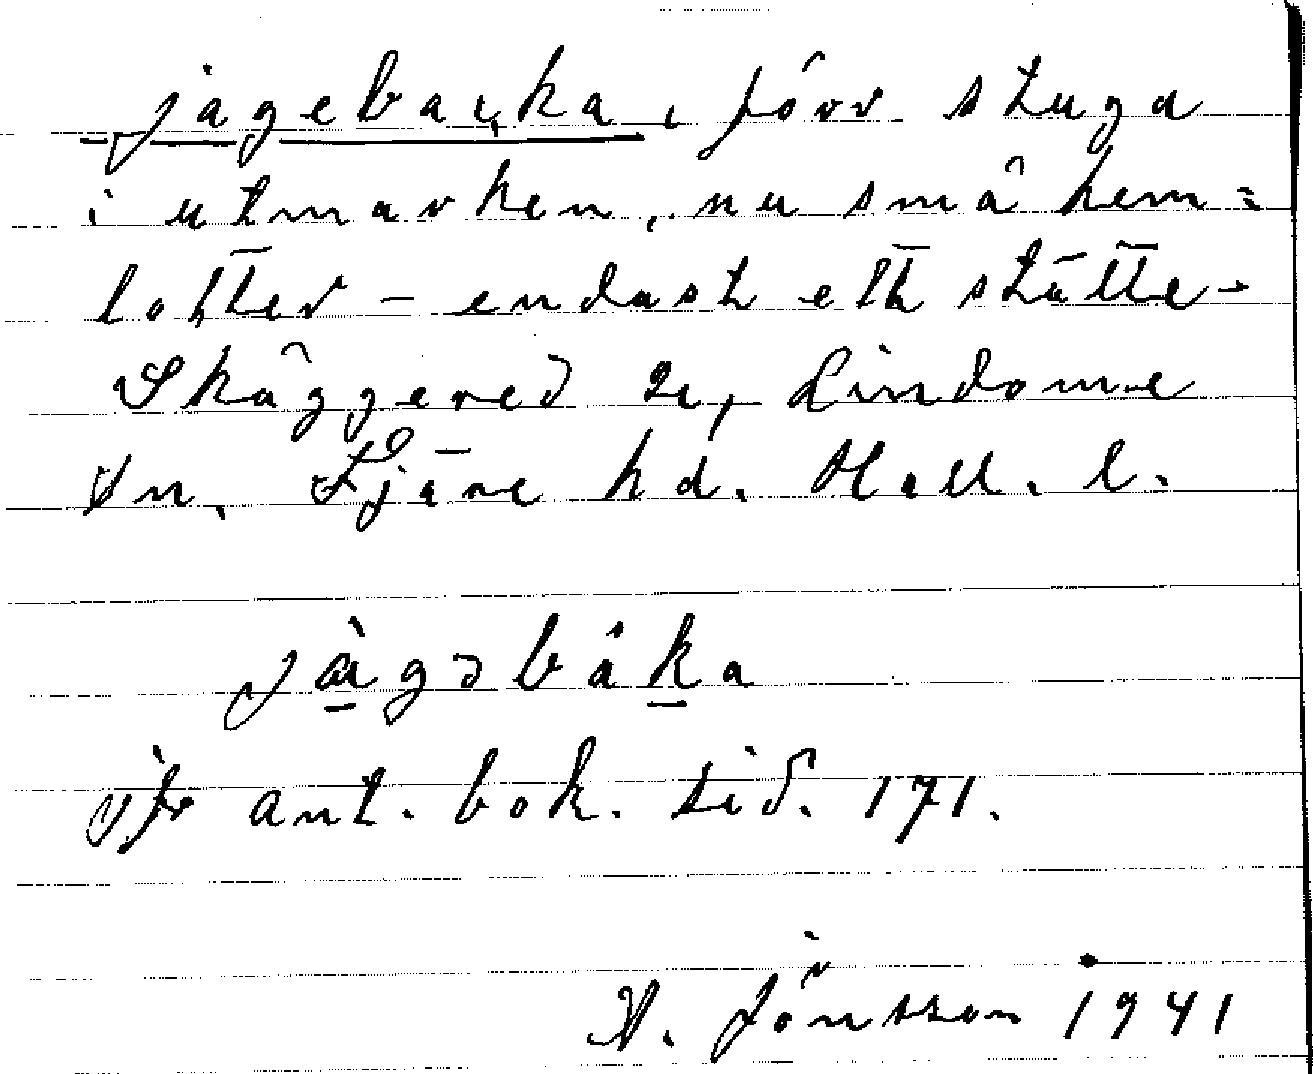 jägebacka, förr stuga
i utmarken, nu små hem=
lotter – endast ett ställe –
Skäggered 2, Lindome
sn. Fjäre hd. Hall. l.
jägəbáka
jfr ant. bok. sid. 171.
A. Jönsson 1941